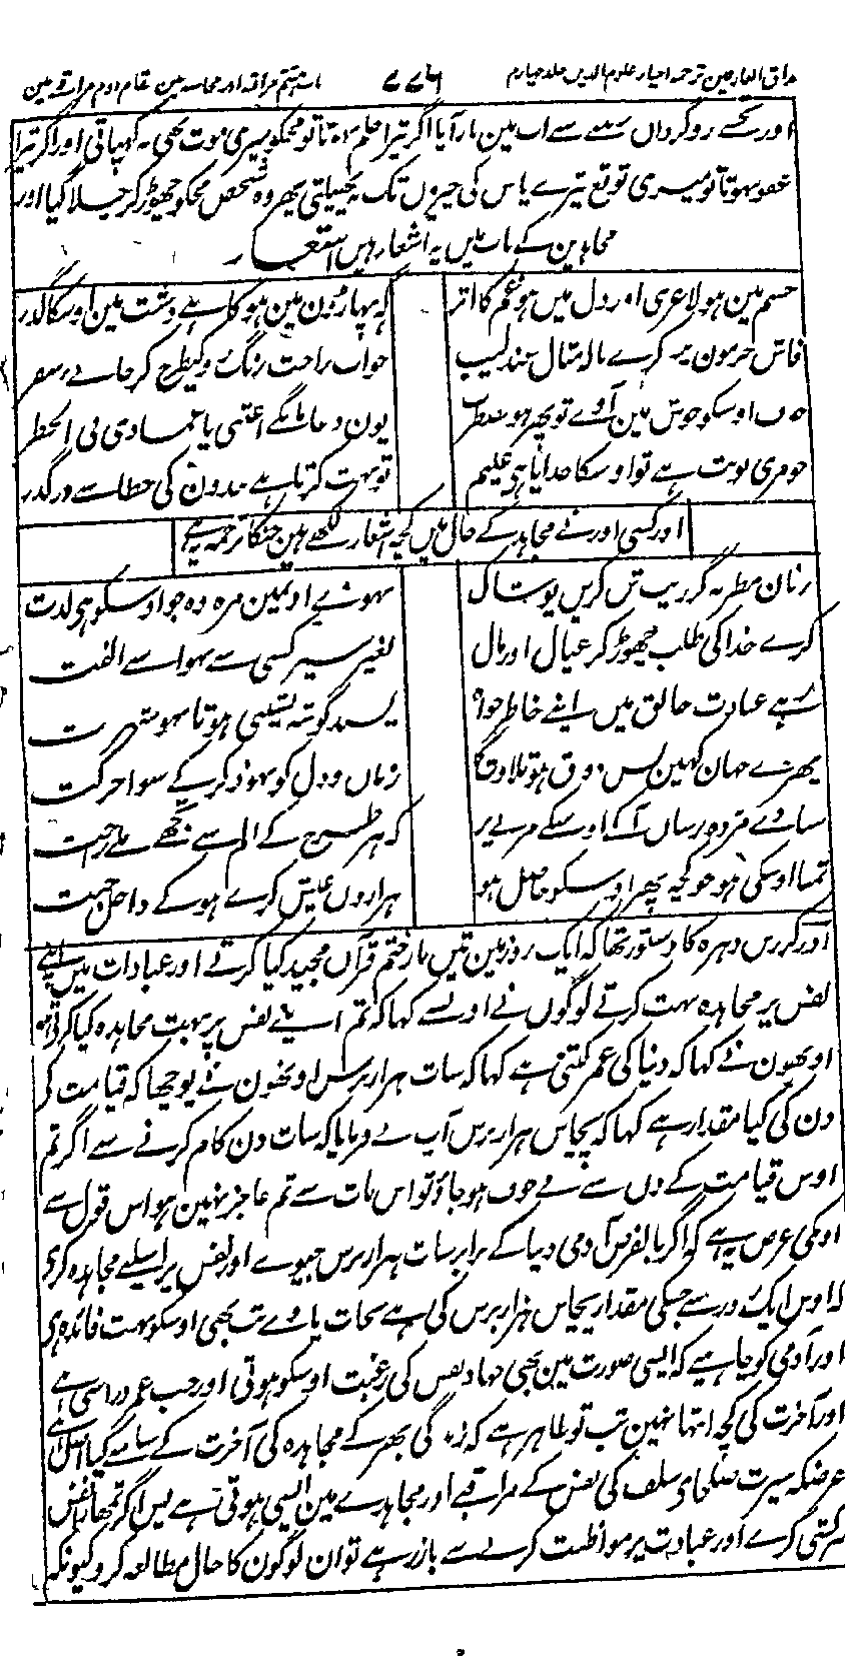 مذاق العارفین ترجمہ احیاء علوم الدین جلد چہارم ۷۷۶ باب ہشتم مراقبہ اور محاسبہ مین مقام دوم مراقبے مین
اور تجھسے روگرداں ہونے سے اب مین باز آیا اگر تیرا حلم نہوتا تو مجکو میری موت بھی نہ کھپاتی اور اگر تیرا
عفو نہوتا تو میری توقع تیرے پاس کی چیزوں تک نہ پھیلتی پھر وہ شخص مجکو چھوڑ کر چلا گیا اور
مجاہدین کے باب میں یہ اشعار ہیں اشعار
جسم مین ہو لاغری اور دل میں ہو غم کا اثر کہ پہاڑون مین ہو گاہے دشت مین اوسکا گذر
فاش جرمون پر کرے نالہ مثال عندلیب خواب راحت رنگ کیطرح کر جاے سفر
خوف اوسکو جوش مین آوے تو پھر ہو مضطر یون دعا مانگے اغثنی یا عمادی فی الخطر
جو مری نوبت ہے تو اوسکا خدایا ہی علیم تو بہت کرتا ہے بندون کی خطا سے درگذر
اور کسی اور نے مجاہد کے حال میں کچھ اشعار لکھے ہین جنکا ترجمہ یہ ہے
زنان مطربہ گر زیب تن کریں پوشاک نہووے اونمین مزہ وہ جو اوسکو ہی لذت
کرے خدا کی طلب چھوڑ کر عیال اور مال بغیر سیر کسی سے نہو اسے الفت
رہے عبادت خالق میں اپنے خاطر خواہ پسند گوشہ نشینی ہو تا نہو شہرت
پھرے جہان کہین بس ذوق ہو تلاوت کا زبان و دل کو نہو ذکر کے سوا حرکت
سناوے مژدہ رساں آکے اوسکے مرنے پر کہ ہر طرح کے الم سے تجھے ملے راحت
تمنا اوسکی ہو جو کچھ پھر اوسکو حاصل ہو ہزاروں عیش کرے ہو کے داخل جنت
اور کرز بن وبرہ کا دستور تھا کہ ایک روز مین تین بار ختم قرآن مجید کیا کرتے اور عبادات میں اپنے
نفس پر مجاہدہ بہت کرتے لوگوں نے اونسے کہا کہ تم اپنے نفس پر بہت مجاہدہ کیا کرتے ہو
اونھون نے کہا کہ دنیا کی عمر کتنی ہے کہا کہ سات ہزار برس اونھون نے پوچھا کہ قیامت کے
دن کی کیا مقدار ہے کہا کہ پچاس ہزار برس آپ نے فرمایا کہ سات دن کام کرنے سے اگر تم
اوس قیامت کے دن سے بے خوف ہو جاؤ تو اس بات سے تم عاجز نہین ہو اس قول سے
اونکی غرض یہ ہے کہ اگر بالفرض آدمی دنیا کے برابر سات ہزار برس جیوے اور نفس پر اسلیے مجاہدہ کرے
کہ اوس ایک روز سے جسکی مقدار پچاس ہزار برس کی ہے نجات پاوے تب بھی اوسکو بہت فائدہ ہے
اور آدمی کو چاہیے کہ ایسی صورت مین بھی جہاد نفس کی رغبت اوسکو ہوتی اور جب عمر ذراسی ہے
اور آخرت کی کچھ انتہا نہین تب تو ظاہر ہے کہ زندگی بھر کے مجاہدہ کی آخرت کے سامنے کیا اصل ہے
غرضکہ سیرت صلحای سلف کی نفس کے مراقبے اور مجاہدے مین ایسی ہوتی ہے پس اگر تمھارا نفس
سرکشی کرے اور عبادت پر مواظبت کرنے سے باز رہے تو ان لوگون کا حال مطالعہ کرو کیونکہ